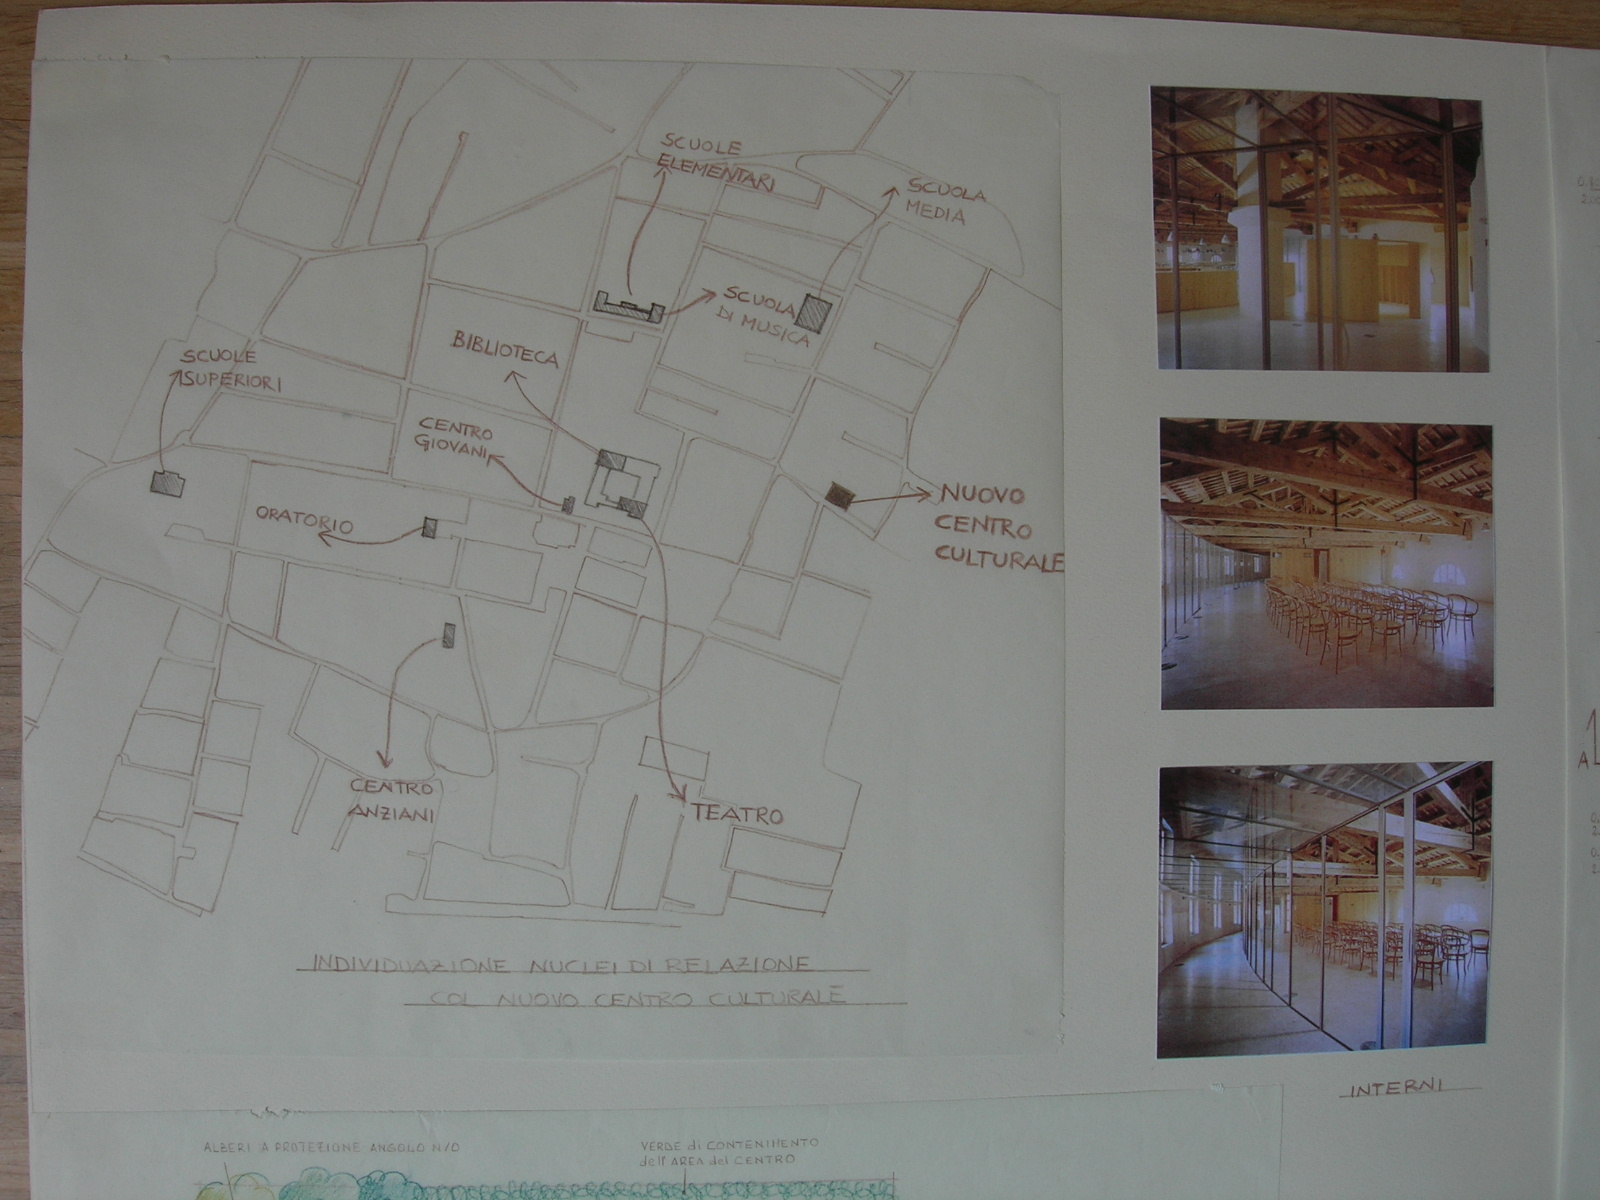 SCUOLE
ELEMENTARI
SCUOLA
MEDIA
SCUOLA
DI MUSICA
BIBLIOTECA
SCUOLE
SUPERIORI
CENTRO
GIOVANI
ORATORIO
NUOVO
CENTRO
CULTURALE
CENTRO
ANZIANI
TEATRO
INDIVIDUAZIONE NUCLEI DI RELAZIONE
COL NUOVO CENTRO CULTURALE
INTERNI
ALBERI A PROTEZIONE ANGOLO N/O
VERDE di CONTENIMENTO
dell'AREA del CENTRO
A